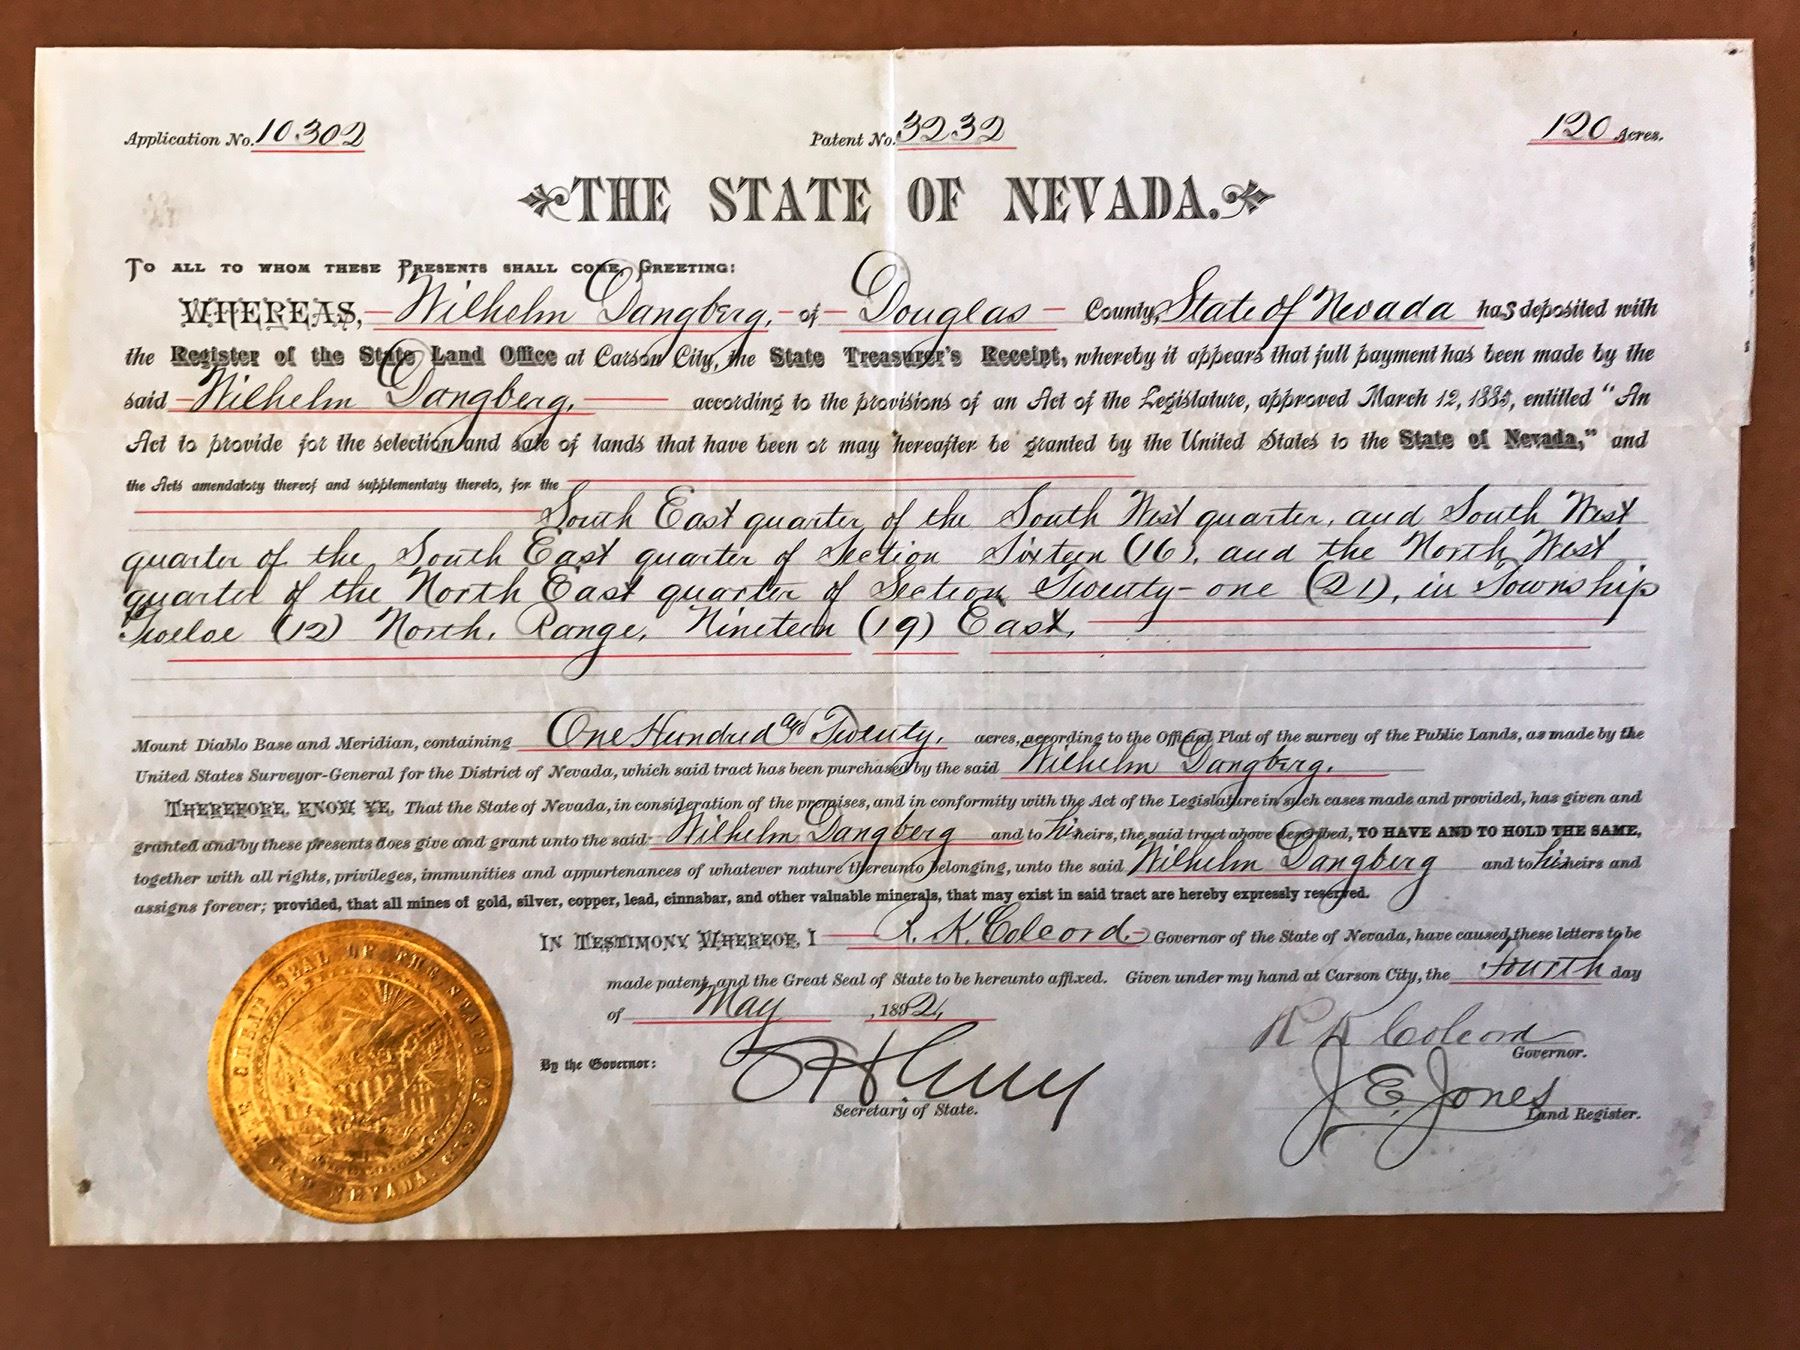 Application No. 10.302 Patent No. 3232 120 Acres.
THE STATE OF NEVADA.
TO ALL TO WHOM THESE PRESENTS SHALL COME, GREETING:
WHEREAS, Wilhelm Dangberg, of Douglas County, State of Nevada has deposited with
the Register of the State Land Office at Carson City, the State Treasurer's Receipt, whereby it appears that full payment has been made by the
said Wilhelm Dangberg, according to the provisions of an Act of the Legislature, approved March 12, 1885, entitled "An
Act to provide for the selection and sale of lands that have been or may hereafter be granted by the United States to the State of Nevada," and
the Acts amendatory thereof and supplementary thereto, for the
South East quarter of the South West quarter, and South West
quarter of the South East quarter of Section Sixteen (16), and the North West
quarter of the North East quarter of Section Twenty-one (21), in Township
Twelve (12) North, Range, Nineteen (19) East,
Mount Diablo Base and Meridian, containing One Hundred and Twenty, acres, according to the Official Plat of the survey of the Public Lands, as made by the
United States Surveyor-General for the District of Nevada, which said tract has been purchased by the said Wilhelm Dangberg.
THEREFORE, KNOW YE, That the State of Nevada, in consideration of the premises, and in conformity with the Act of the Legislature in such cases made and provided, has given and
granted and by these presents does give and grant unto the said Wilhelm Dangberg and to his heirs, the said tract above described, TO HAVE AND TO HOLD THE SAME,
together with all rights, privileges, immunities and appurtenances of whatever nature thereunto belonging, unto the said Wilhelm Dangberg and to his heirs and
assigns forever; provided, that all mines of gold, silver, copper, lead, cinnabar, and other valuable minerals, that may exist in said tract are hereby expressly reserved.
IN TESTIMONY WHEREOF, I R. K. Colcord. Governor of the State of Nevada, have caused these letters to be
made patent, and the Great Seal of State to be hereunto affixed. Given under my hand at Carson City, the fourth day
of May, 1892,
R K Colcord
Governor.
By the Governor:
Secretary of State.
J. E. Jones
Land Register.
THE GREAT SEAL OF THE STATE OF NEVADA